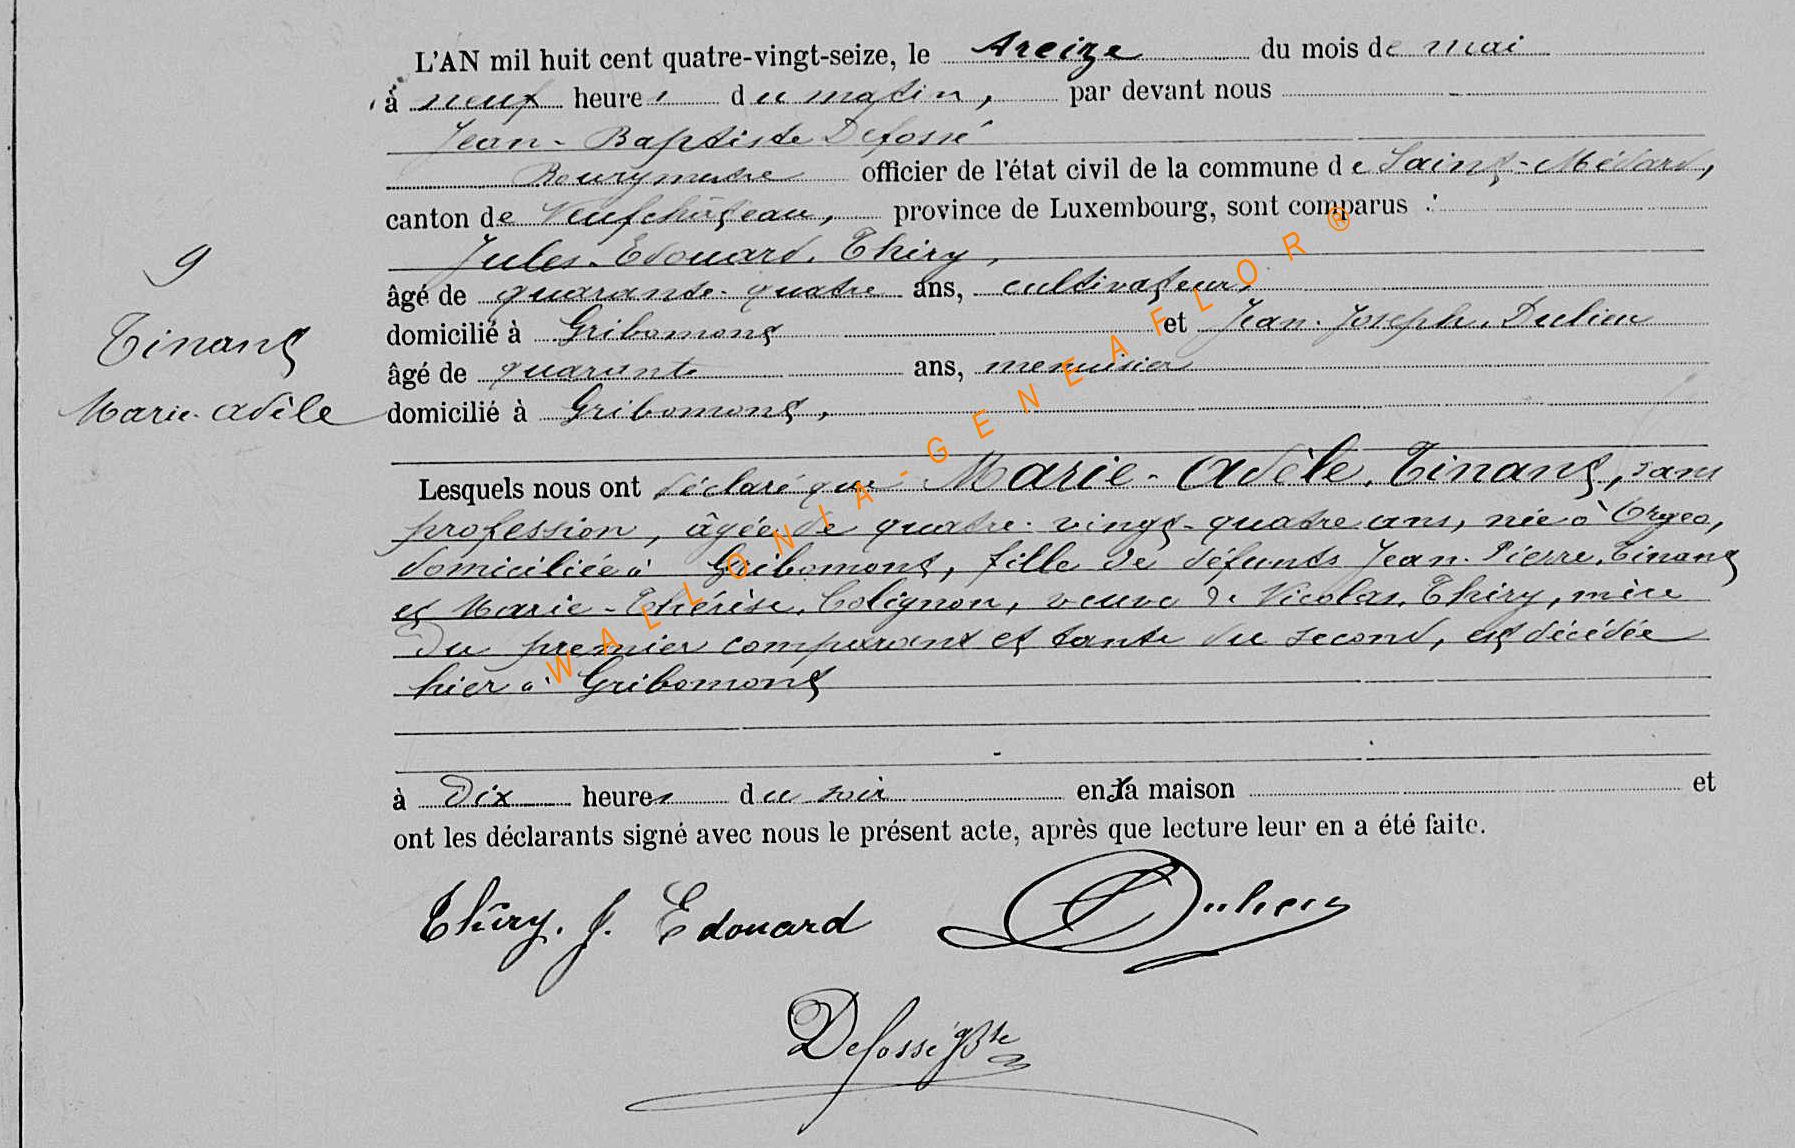 L'AN mil huit cent quatre-vingt-seize, le treize du mois de mai
à neuf heures du matin, par devant nous
Jean-Baptiste Defossé
Bourgmestre officier de l'état civil de la commune de Saint-Médard,
canton de Neufchâteau, province de Luxembourg, sont comparus :
Jules-Edouard Thiry,
9
âgé de quarante-quatre ans, cultivateur,
domicilié à Gribomont et Jean-Joseph Dulieu
Tinant
âgé de quarante ans, menuisier
Marie-Adèle
domicilié à Gribomont,
Lesquels nous ont déclaré que Marie-Adèle Tinant, sans
profession, âgée de quatre-vingt-quatre ans, née à Orgeo,
domiciliée à Gribomont, fille de défunts Jean-Pierre Tinant
et Marie-Thérèse Colignon, veuve de Nicolas Thiry, mère
du premier comparant et tante du second, est décédée
hier à Gribomont
à dix heures du soir en sa maison et
ont les déclarants signé avec nous le présent acte, après que lecture leur en a été faite.
Thiry. J. Edouard Dulieu
Defossé JBte
WALLONIA-GENEAFLOR®